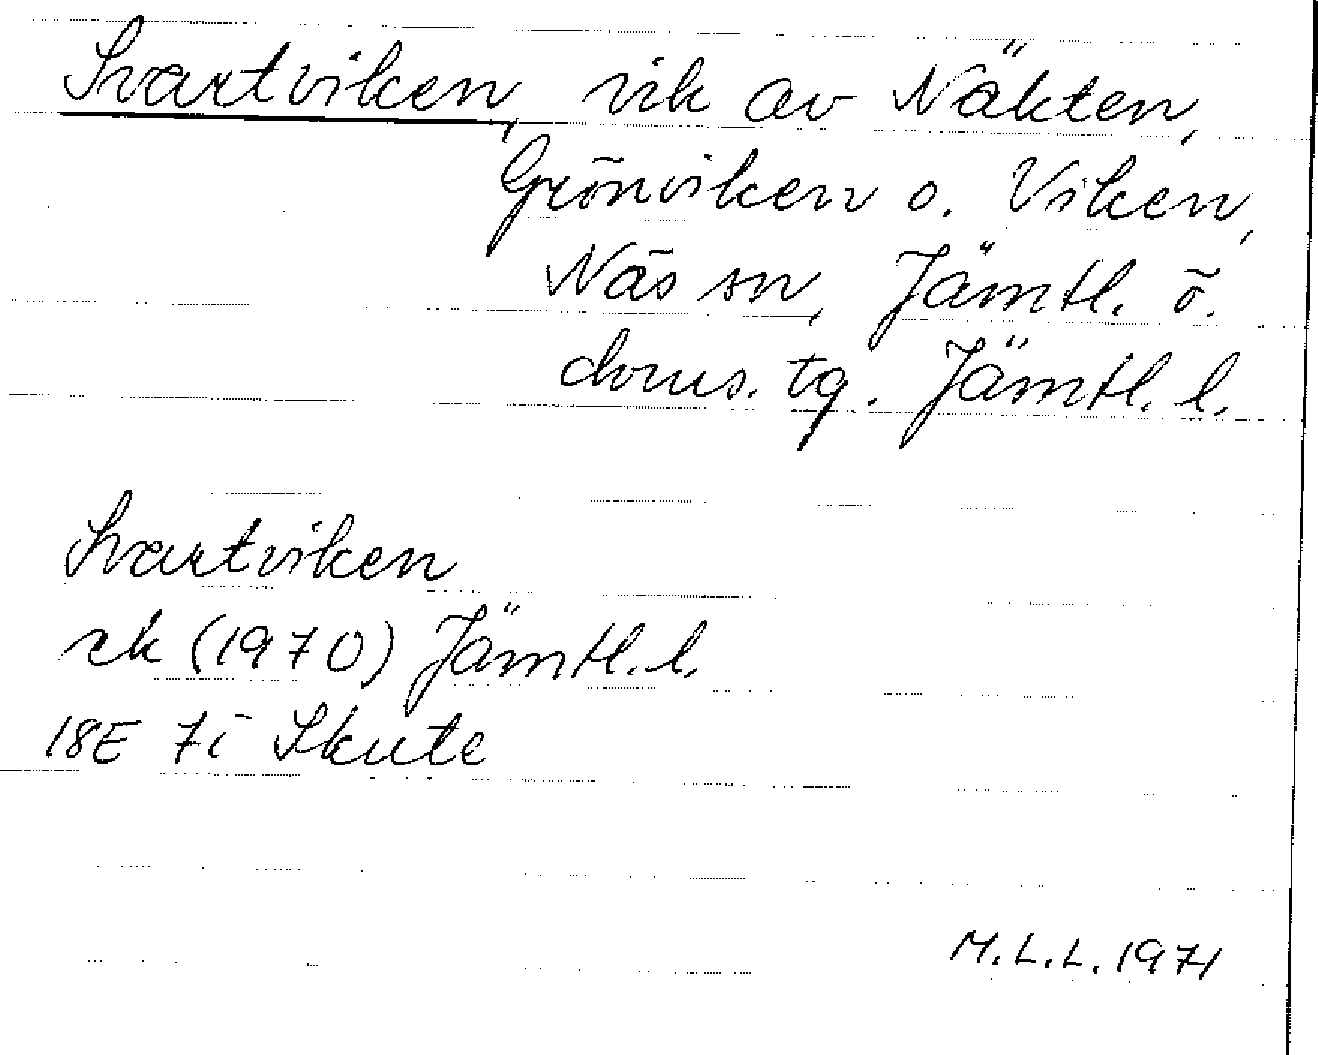 Svartviken, vik av Näkten,
Grönviken o. Viken,
Näs sn, Jämtl. ö.
doms. tg. Jämtl. l.
Svartviken
rk (1970) Jämtl. l.
18E 7i Skute
M.L.L. 1971